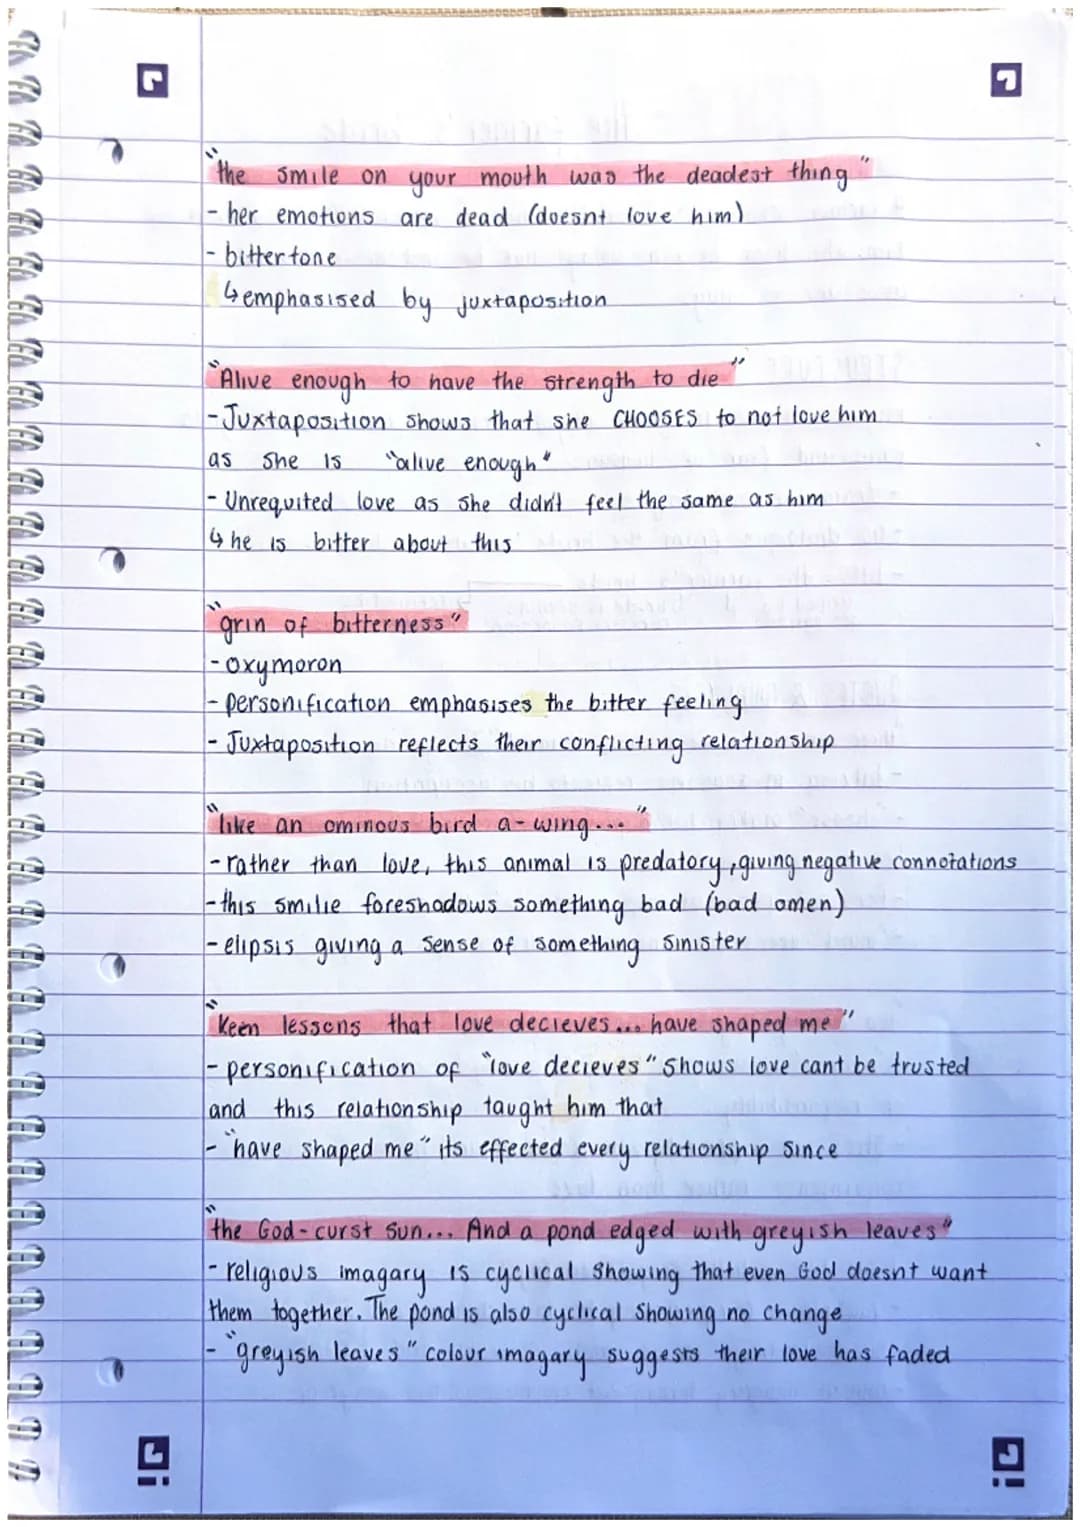 "the smile on your mouth was the deadest thing"
- her emotions are dead (doesnt love him)
- bitter tone
↳ emphasised by juxtaposition
"Alive enough to have the strength to die"
- Juxtaposition shows that she CHOOSES to not love him
as she is "alive enough"
- Unrequited love as she didn't feel the same as him
↳ he is bitter about this
"grin of bitterness"
- oxymoron
- personification emphasises the bitter feeling
- Juxtaposition reflects their conflicting relationship
"like an ominous bird a-wing..."
- rather than love, this animal is predatory, giving negative connotations
- this smilie foreshadows something bad (bad omen)
- elipsis giving a sense of something sinister
"Keen lessons that love decieves... have shaped me"
- personification of "love decieves" shows love cant be trusted
and this relationship taught him that
- "have shaped me" its effected every relationship since
"the God-curst sun... And a pond edged with greyish leaves"
- religious imagary is cyclical showing that even God doesnt want
them together. The pond is also cyclical showing no change
- "greyish leaves" colour imagary suggests their love has faded